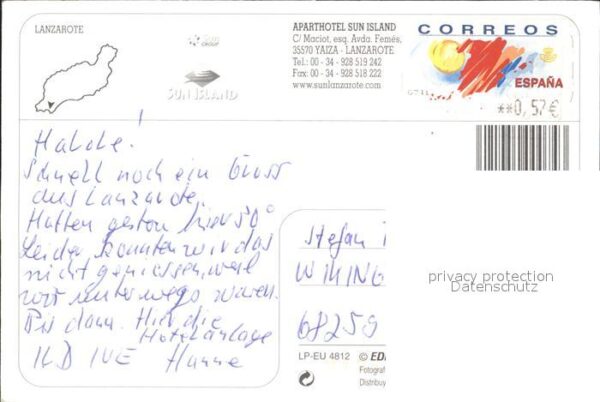 LANZAROTE
Sun
GROUP
SUN ISLAND
APARTHOTEL SUN ISLAND
C/ Maciot, esq. Avda. Femés,
35570 YAIZA - LANZAROTE
Tel.: 00 - 34 - 928 519 242
Fax: 00 - 34 - 928 518 222
www.sunlanzarote.com
CORREOS
ESPAÑA
**0,57€
Schnell noch ein Gruss
aus Lanzarote.
Hatten gestern hier 50°
Leider konnten wir das
nicht geniessen, weil
wir unterwegs waren.
Bis dann. Hier die
Hotelanlage
HD Hanne
Stefan
WIKING
68259
privacy protection
Datenschutz
LP-EU 4812
© ED
Fotograf
Distribuy